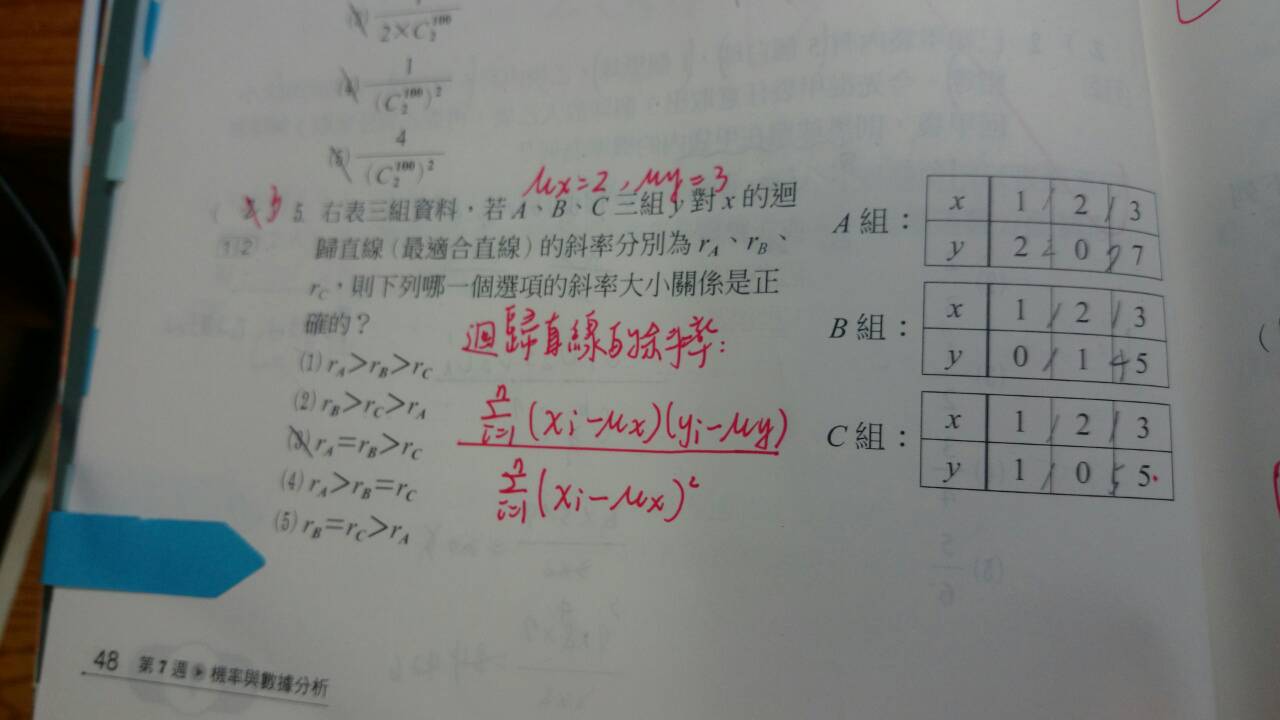 2×C₂¹⁰⁰
(4) 1/(C₂¹⁰⁰)²
(5) 4/(C₂¹⁰⁰)²
μx=2, μy=3
3 5. 右表三組資料，若 A、B、C 三組 y 對 x 的迴
1 2 歸直線(最適合直線)的斜率分別為 r_A、r_B、
r_C，則下列哪一個選項的斜率大小關係是正
確的？
(1) r_A>r_B>r_C
(2) r_B>r_C>r_A
(3) r_A=r_B>r_C
(4) r_A>r_B=r_C
(5) r_B=r_C>r_A
迴歸直線的斜率:
Σ(i=1→n)(xi-μx)(yi-μy)
Σ(i=1→n)(xi-μx)²
A 組：
x 1 2 3
y 2 0 7
B 組：
x 1 2 3
y 0 1 5
C 組：
x 1 2 3
y 1 0 5
48 第 7 週 機率與數據分析